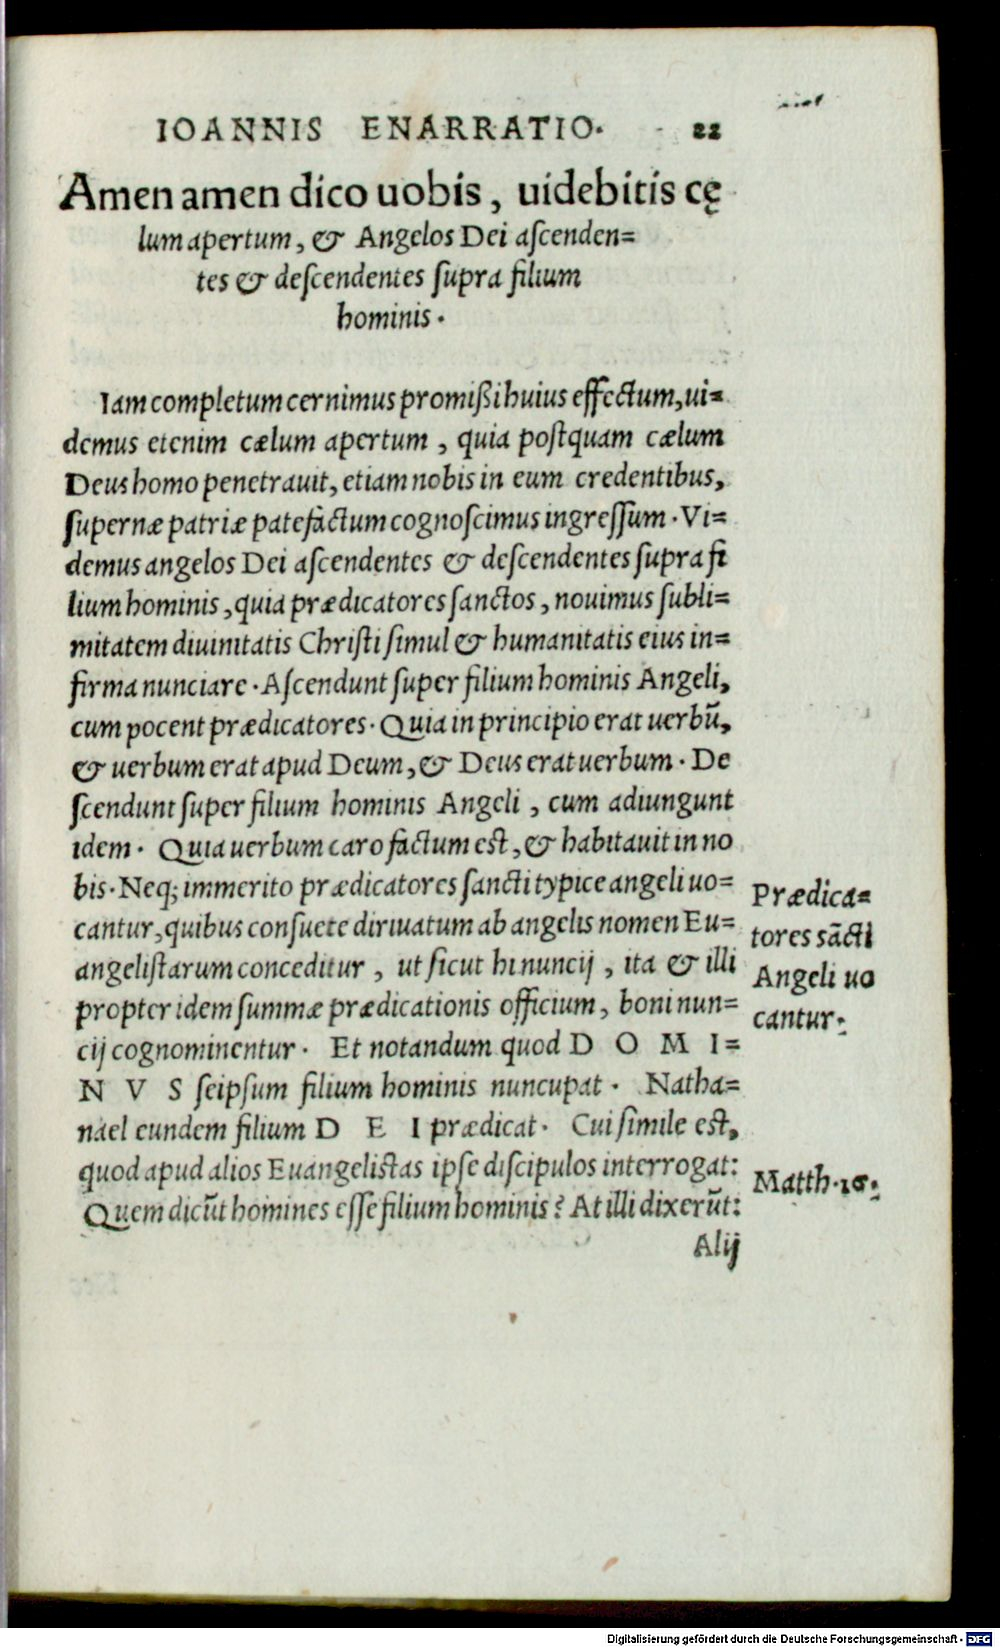 IOANNIS ENARRATIO. 22
Amen amen dico uobis, uidebitis cę
lum apertum, & Angelos Dei aſcenden=
tes & deſcendentes ſupra filium
hominis.
Iam completum cernimus promißi huius effectum, ui=
demus etenim cælum apertum, quia poſtquam cælum
Deus homo penetrauit, etiam nobis in eum credentibus,
ſupernæ patriæ patefactum cognoſcimus ingreſſum. Vi=
demus angelos Dei aſcendentes & deſcendentes ſupra fi
lium hominis, quia prædicatores ſanctos, nouimus ſubli=
mitatem diuinitatis Chriſti ſimul & humanitatis eius in=
firma nunciare. Aſcendunt ſuper filium hominis Angeli,
cum pocent prædicatores. Quia in principio erat uerbū,
& uerbum erat apud Deum, & Deus erat uerbum. De
ſcendunt ſuper filium hominis Angeli, cum adiungunt
idem. Quia uerbum caro factum est, & habitauit in no
bis. Neq; immerito prædicatores ſancti typice angeli uo=
cantur, quibus conſuete diriuatum ab angelis nomen Eu=
angeliſtarum conceditur, ut ſicut hi nuncij, ita & illi
propter idem ſummæ prædicationis officium, boni nun=
cij cognominentur. Et notandum quod D O M I=
N V S ſeipſum filium hominis nuncupat. Natha=
nael eundem filium D E I prædicat. Cui ſimile eſt,
quod apud alios Euangeliſtas ipſe diſcipulos interrogat:
Quem dicūt homines eſſe filium hominis? At illi dixerūt:
Alij
Prædica=
tores sācti
Angeli uo
cantur.
Matth.16.
Digitalisierung gefördert durch die Deutsche Forschungsgemeinschaft - DFG